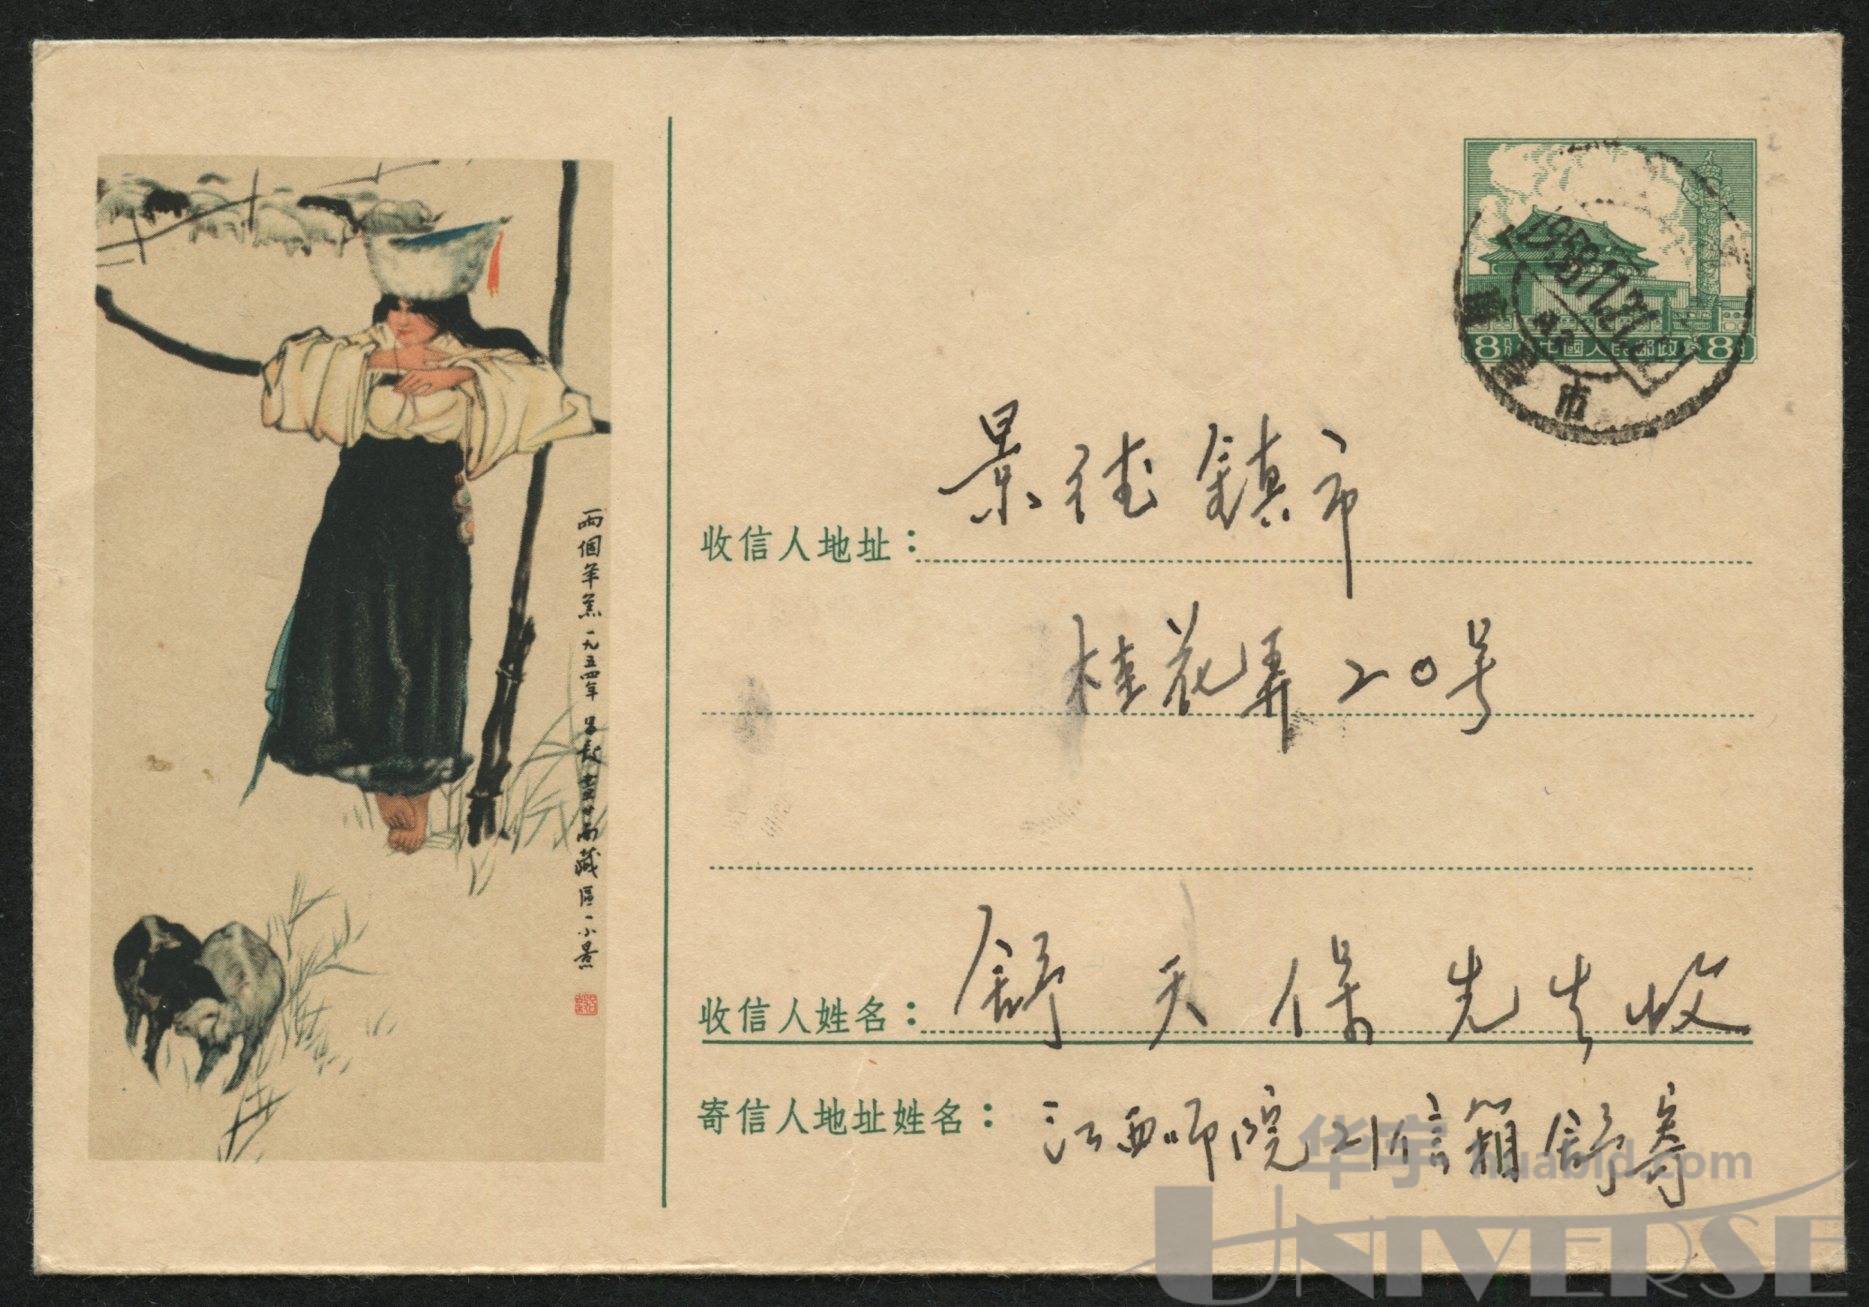 8分 中國人民邮政 8分
1959.11.21
南昌市
兩個羊羔 一九五四年 昌穀書甘南藏區一小景
收信人地址：景德鎮市
桂花弄20号
收信人姓名：舒天保先生收
寄信人地址姓名：江西师院21信箱舒寄
华宇 huabid.com
UNIVERSE